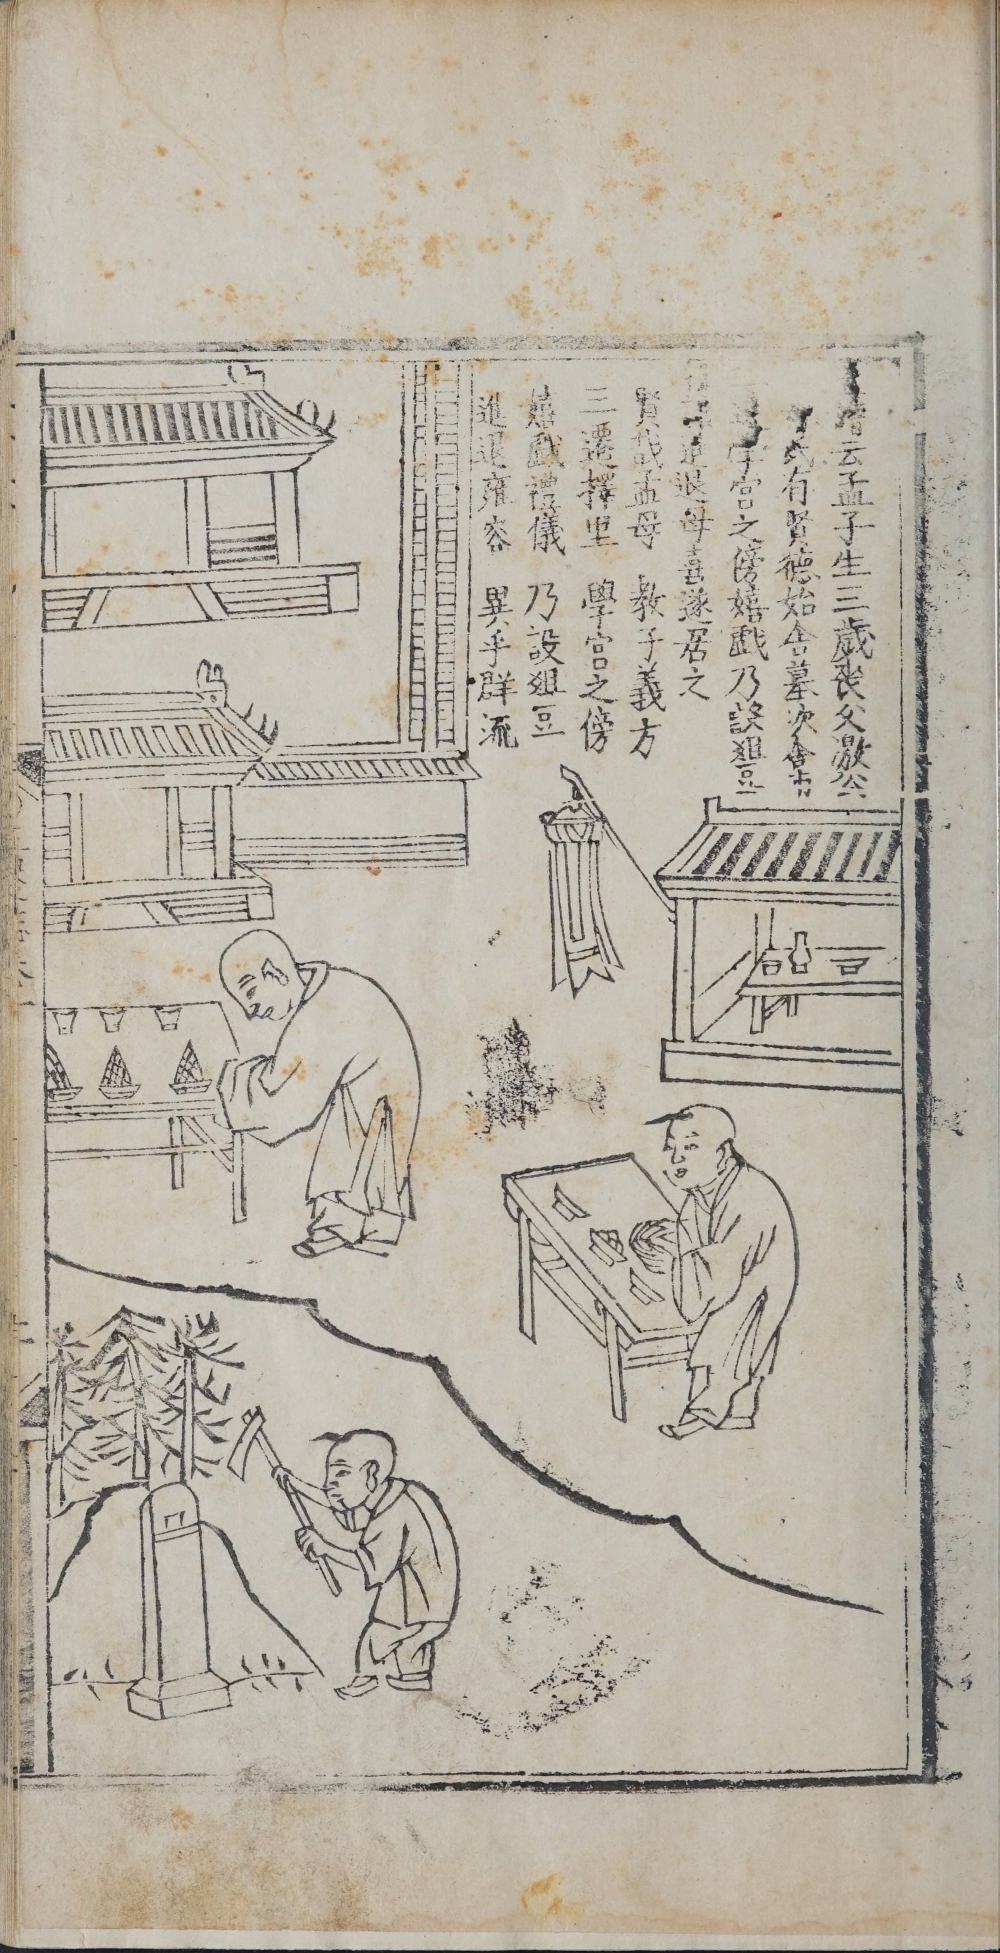 云孟子生三歲喪父激公
氏有賢德始舍墓次舍市
學宮之傍嬉戲乃設俎豆
進退母喜遂居之
賢哉孟母 教子義方
三遷擇里 學宮之傍
嬉戲禮儀 乃設俎豆
進退雍容 異乎群流